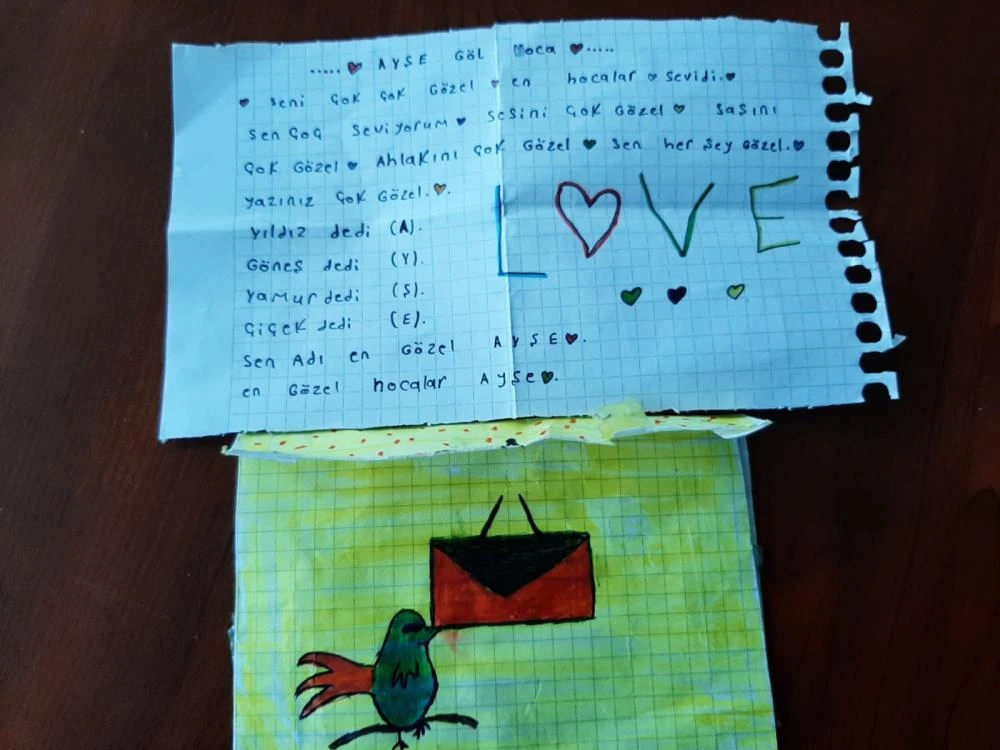 ..... ♥ AYŞE GÖL Hoca ♥.....
♥ seni Çok Çok Gözel ♥ en hocalar ♥ sevidi.♥
sen Çog seviyorum ♥ sesini Çok Gözel ♥ saşını
Çok Gözel ♥ Ahlakını Çok Gözel ♥ sen her şey Gözel.♥
yazınız Çok Gözel.♥.
LOVE
yıldız dedi (A).
Göneş dedi (Y).
yamur dedi (Ş).
Çiçek dedi (E).
sen Adı en Gözel AYŞE♥.
en Gözel hocalar Ayşe♥.